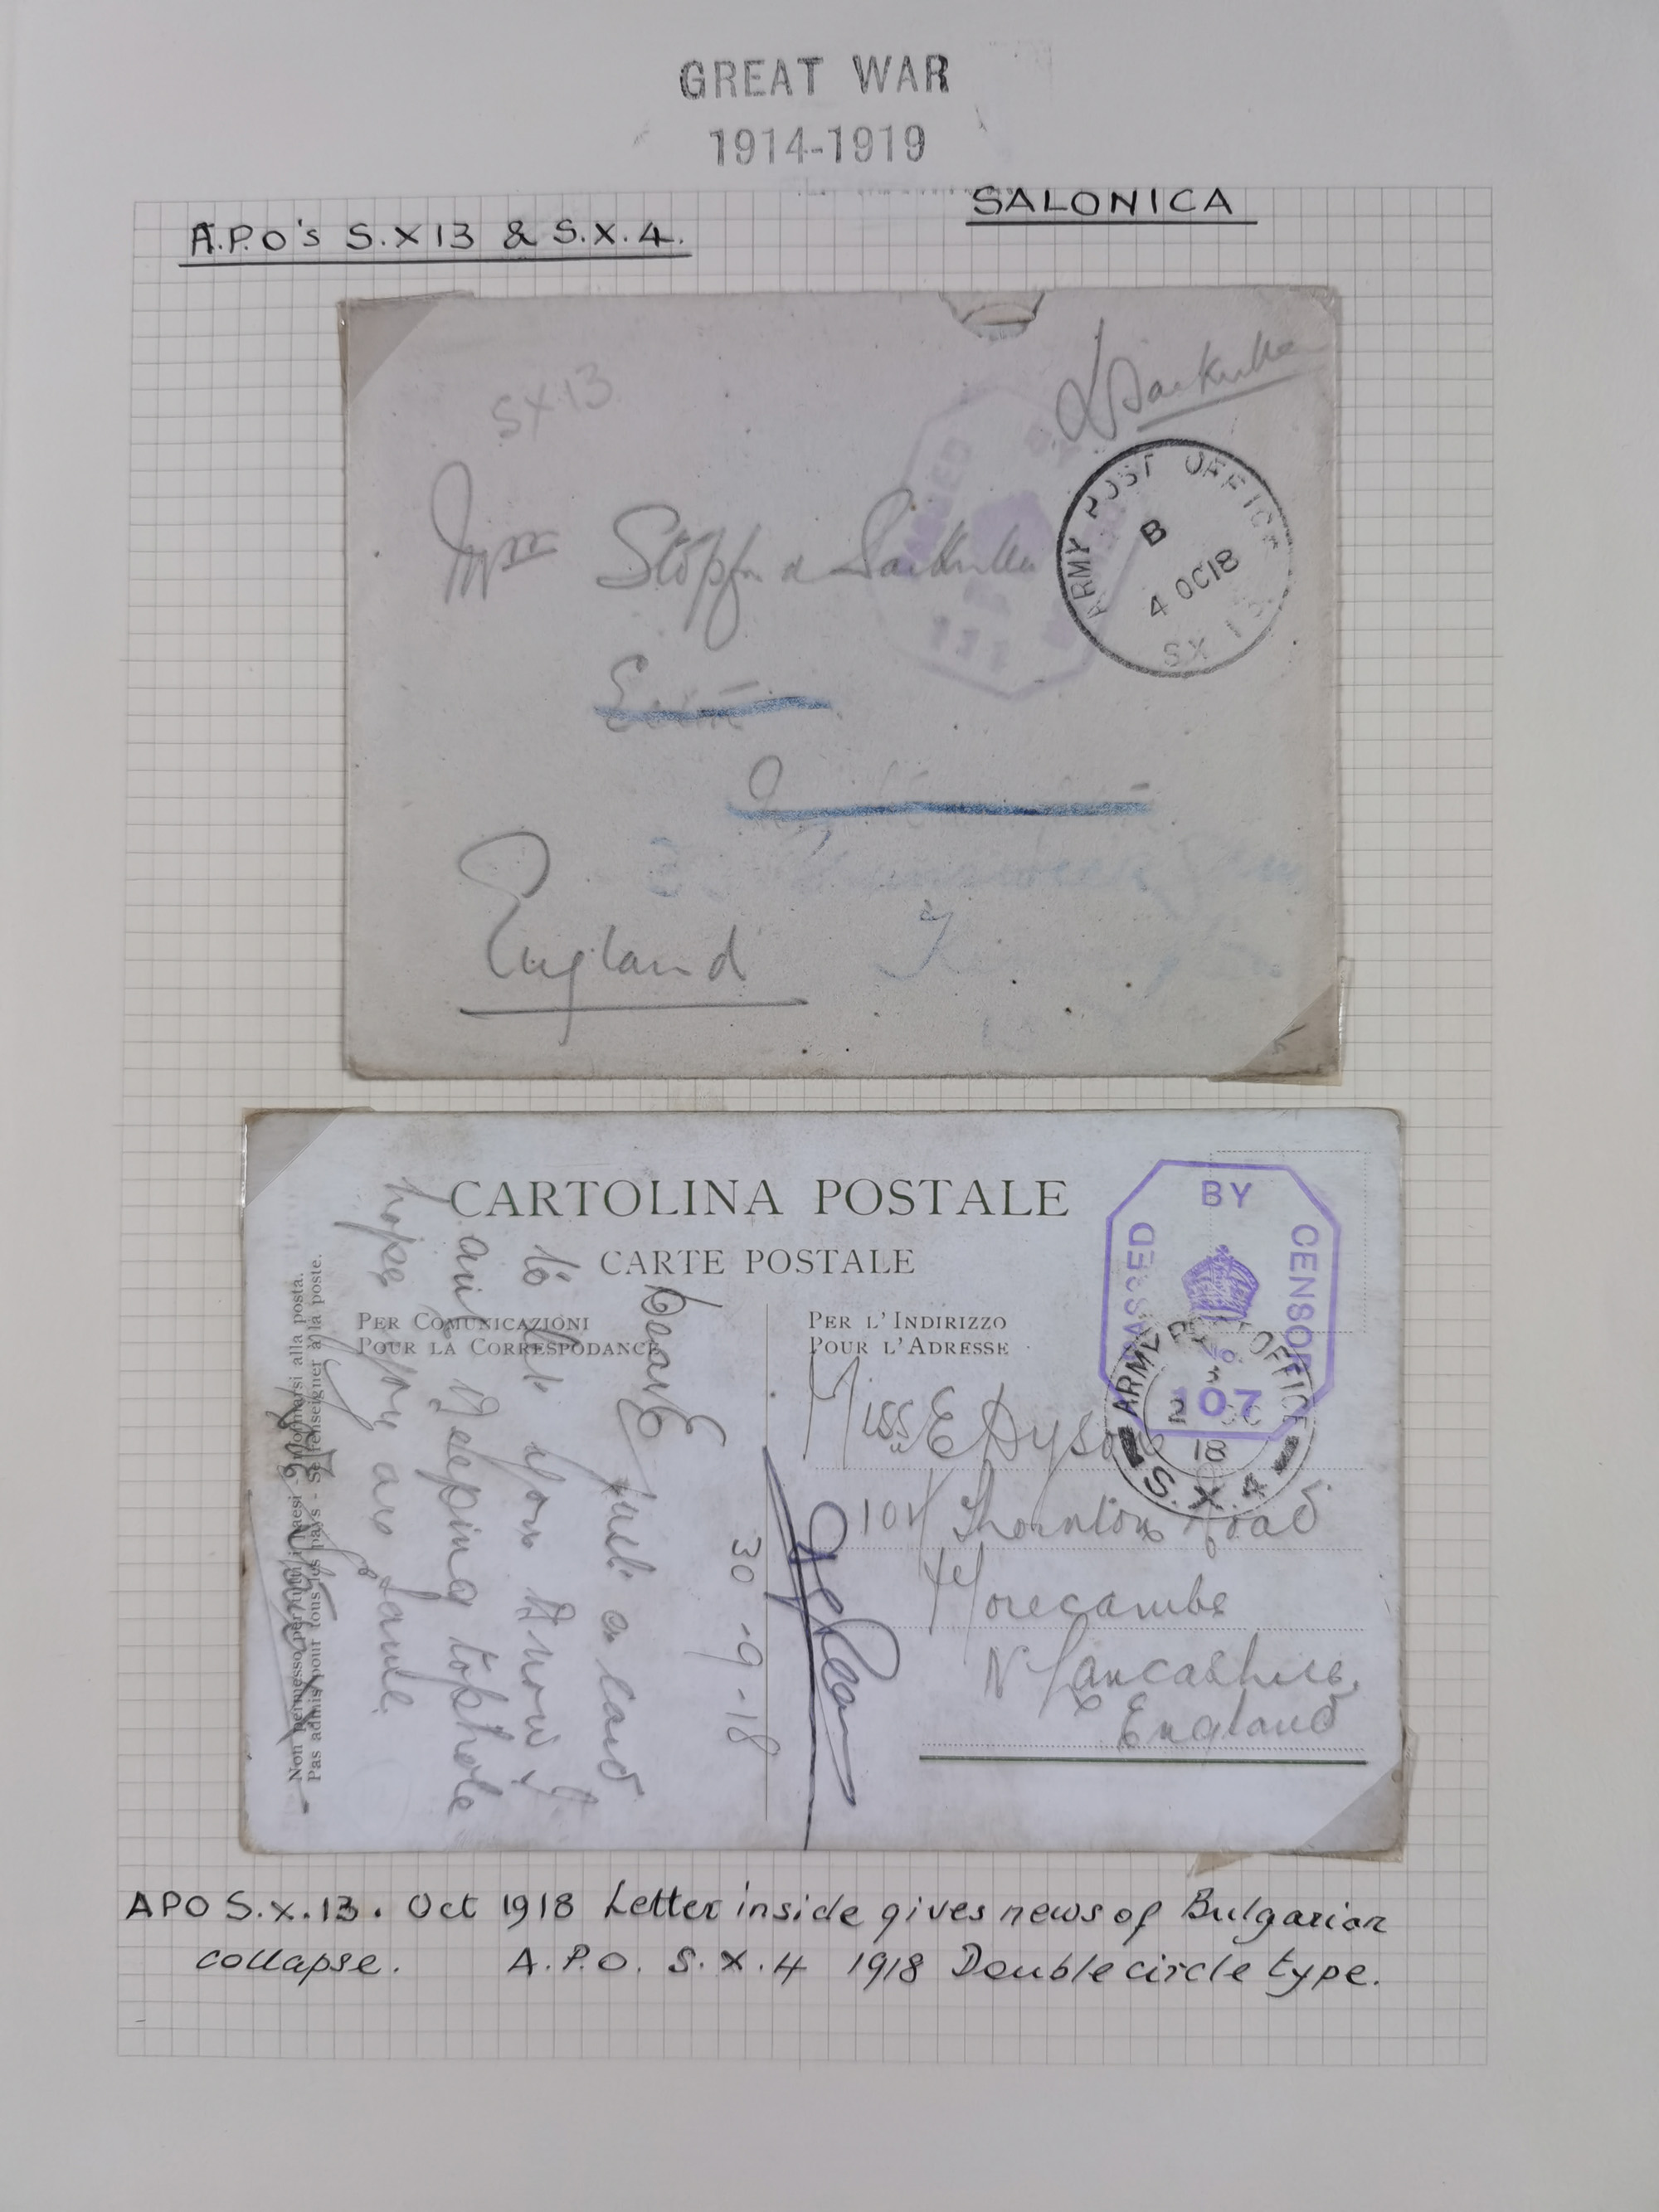 GREAT WAR
1914-1919
SALONICA
A.P.O's S.X13 & S.X.4.
SX13
ARMY POST OFFICE
B
4 OC 18
SX 13
England
CARTOLINA POSTALE
CARTE POSTALE
PER COMUNICAZIONI
POUR LA CORRESPODANCE
PER L'INDIRIZZO
POUR L'ADRESSE
PASSED BY CENSOR
107
ARMY POST OFFICE
18
S.X.4
Miss E Dyson
Thornton Road
Morecambe
N Lancashire
England
30-9-18
Just a card
to let you know I
am keeping tophole
hope you are same.
Non permesso per tutti i paesi - informarsi alla posta.
Pas admis pour tous les pays - Se renseigner à la poste.
APO S.X.13. Oct 1918 Letter inside gives news of Bulgarian
collapse. A.P.O. S.X.4 1918 Double circle type.